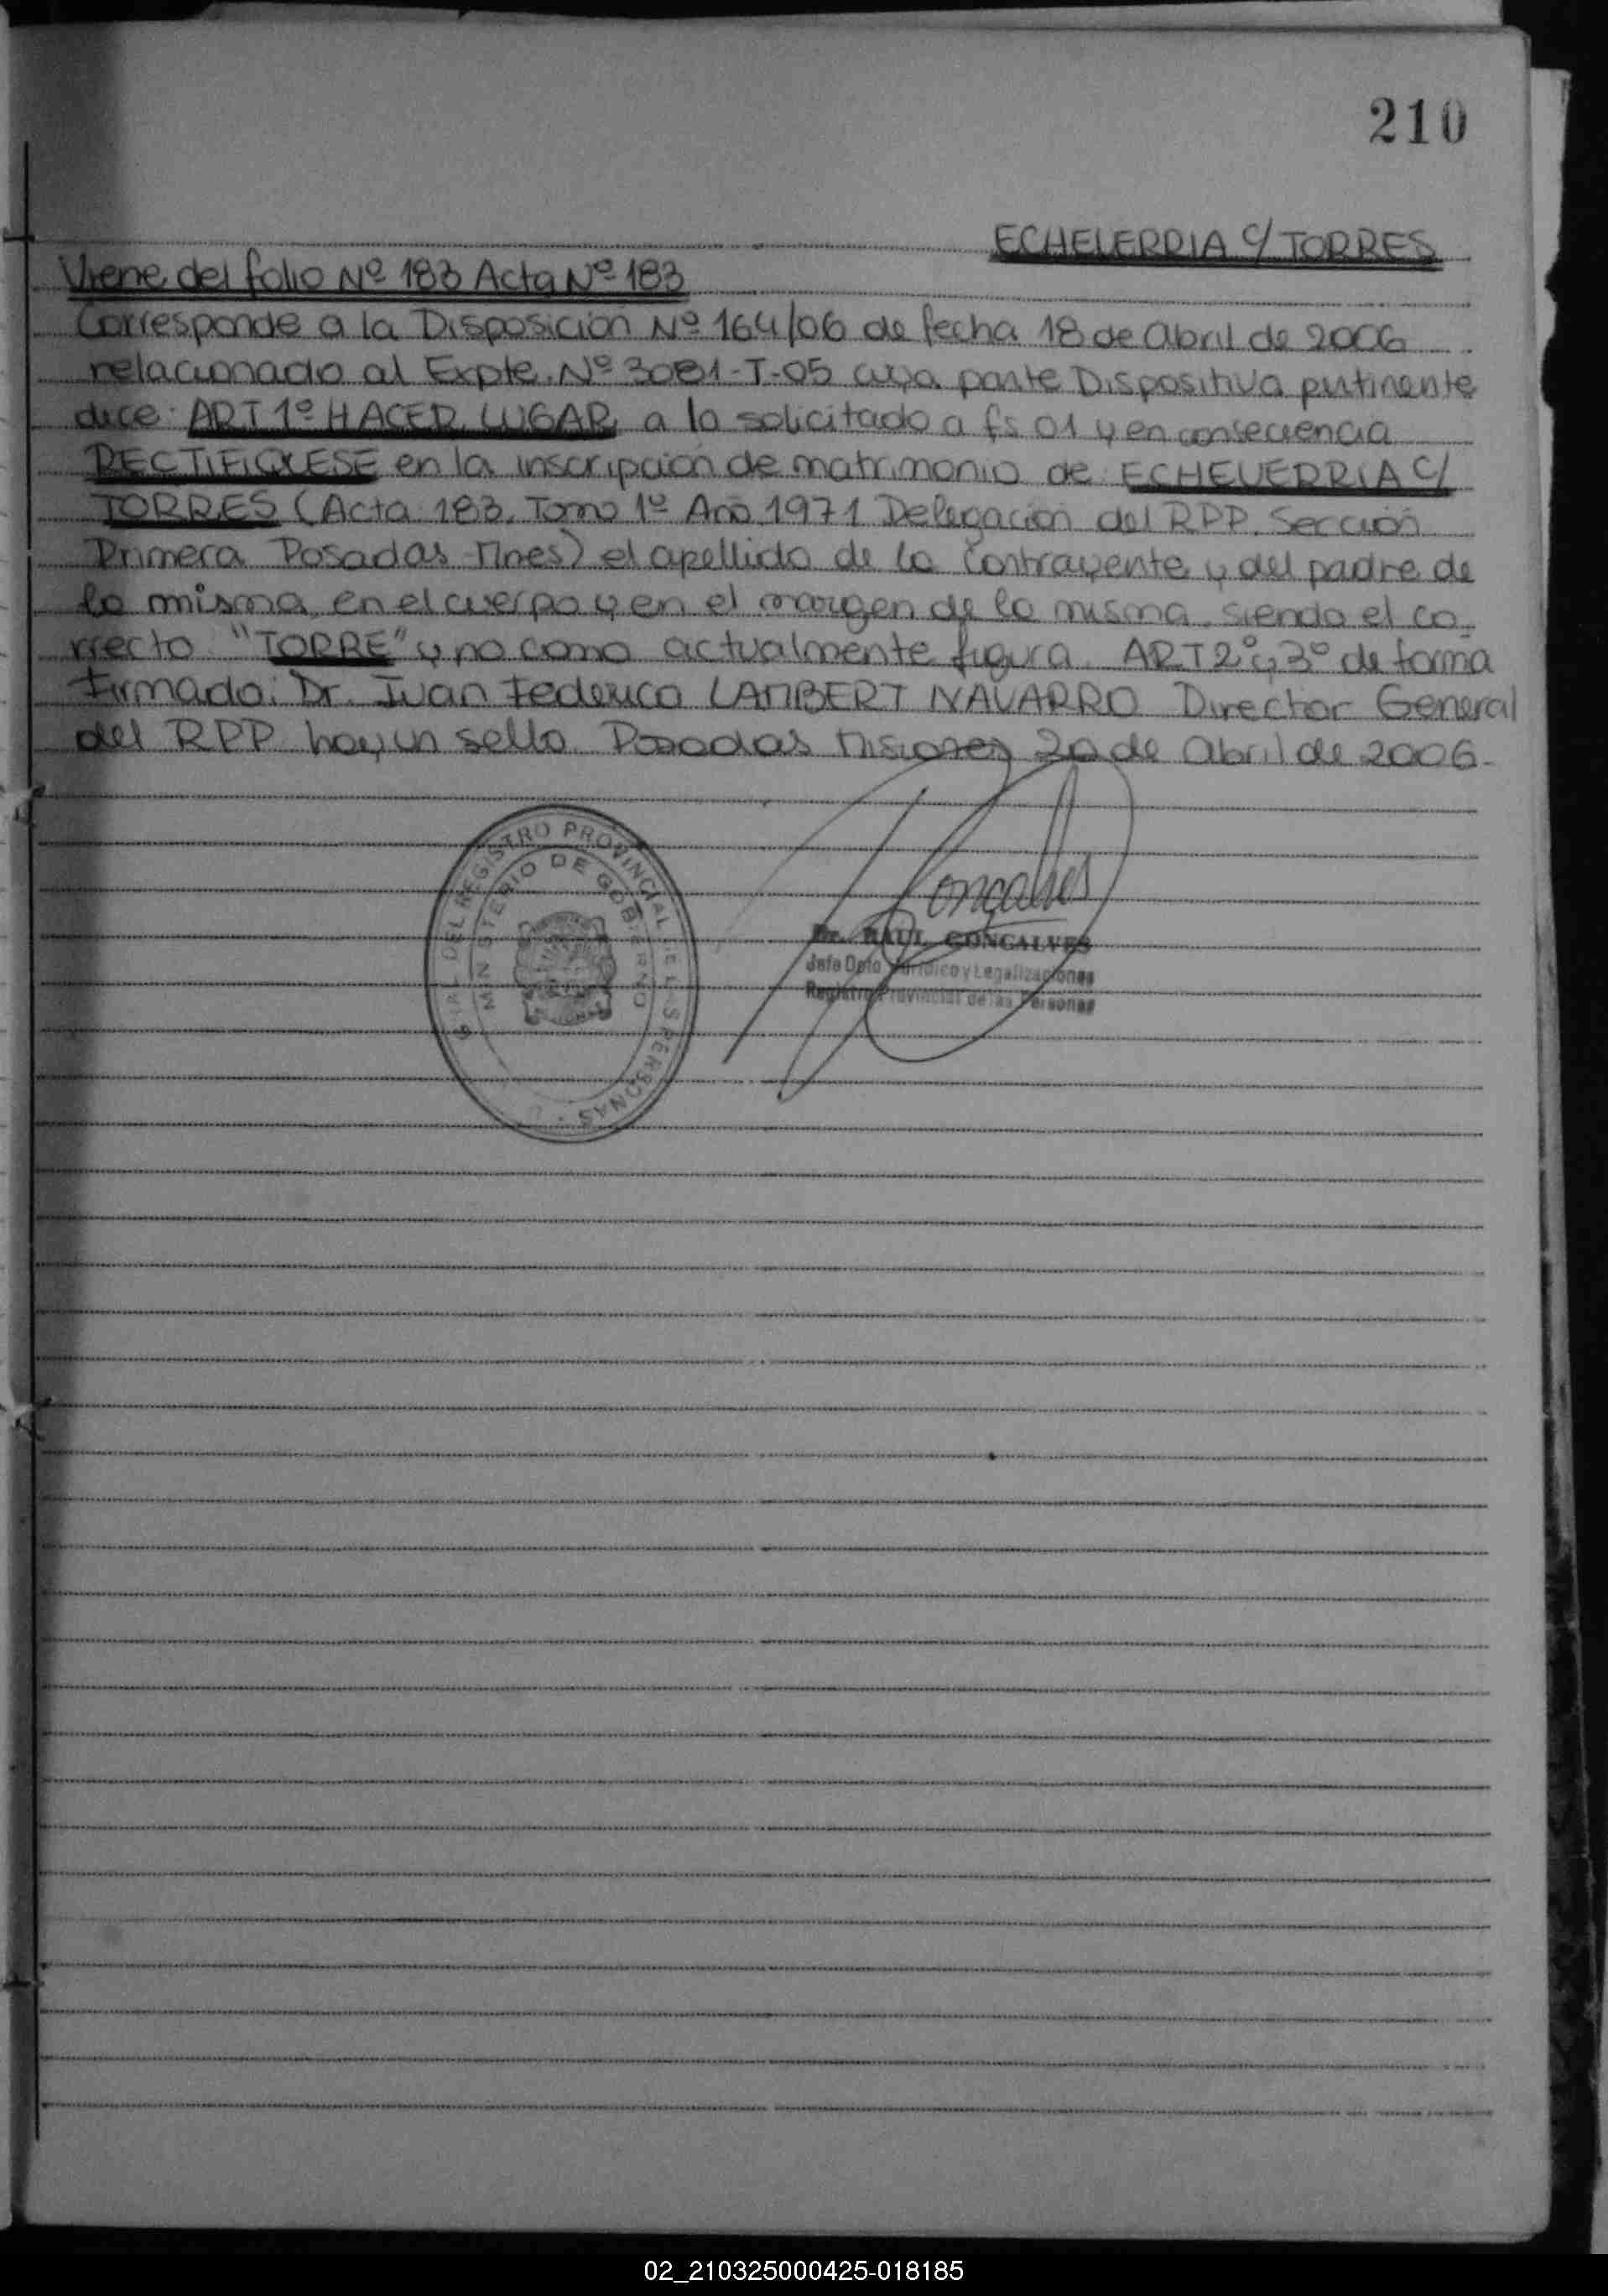 210
ECHELERRIA C/ TORRES
Viene del folio Nº 183 Acta Nº 183
Corresponde a la Disposición Nº 164/06 de fecha 18 de Abril de 2006
relacionado al Expte. Nº 3081-T-05 cuya parte Dispositiva pertinente
dice: ART 1º HACER LUGAR a lo solicitado a fs 01 y en consecuencia
RECTIFIQUESE en la inscripción de matrimonio de ECHEVERRIA C/
TORRES (Acta 183, Tomo 1º Año 1971 Delegación del RPP. Sección
Primera Posadas Mnes) el apellido de la contrayente y del padre de
la misma, en el cuerpo y en el margen de la misma, siendo el co-
rrecto "TORRE" y no como actualmente figura. ART 2º y 3º de forma
Firmado: Dr. Juan Federico LAMBERT NAVARRO Director General
del RPP hay un sello. Posadas Misiones 20 de Abril de 2006.
DEL REGISTRO PROVINCIAL DE LAS PERSONAS
MINISTERIO DE GOBIERNO
Goncalves
Dr. RAUL GONCALVES
Jefe Dpto. Jurídico y Legalizaciones
Registro Provincial de las Personas
02_210325000425-018185